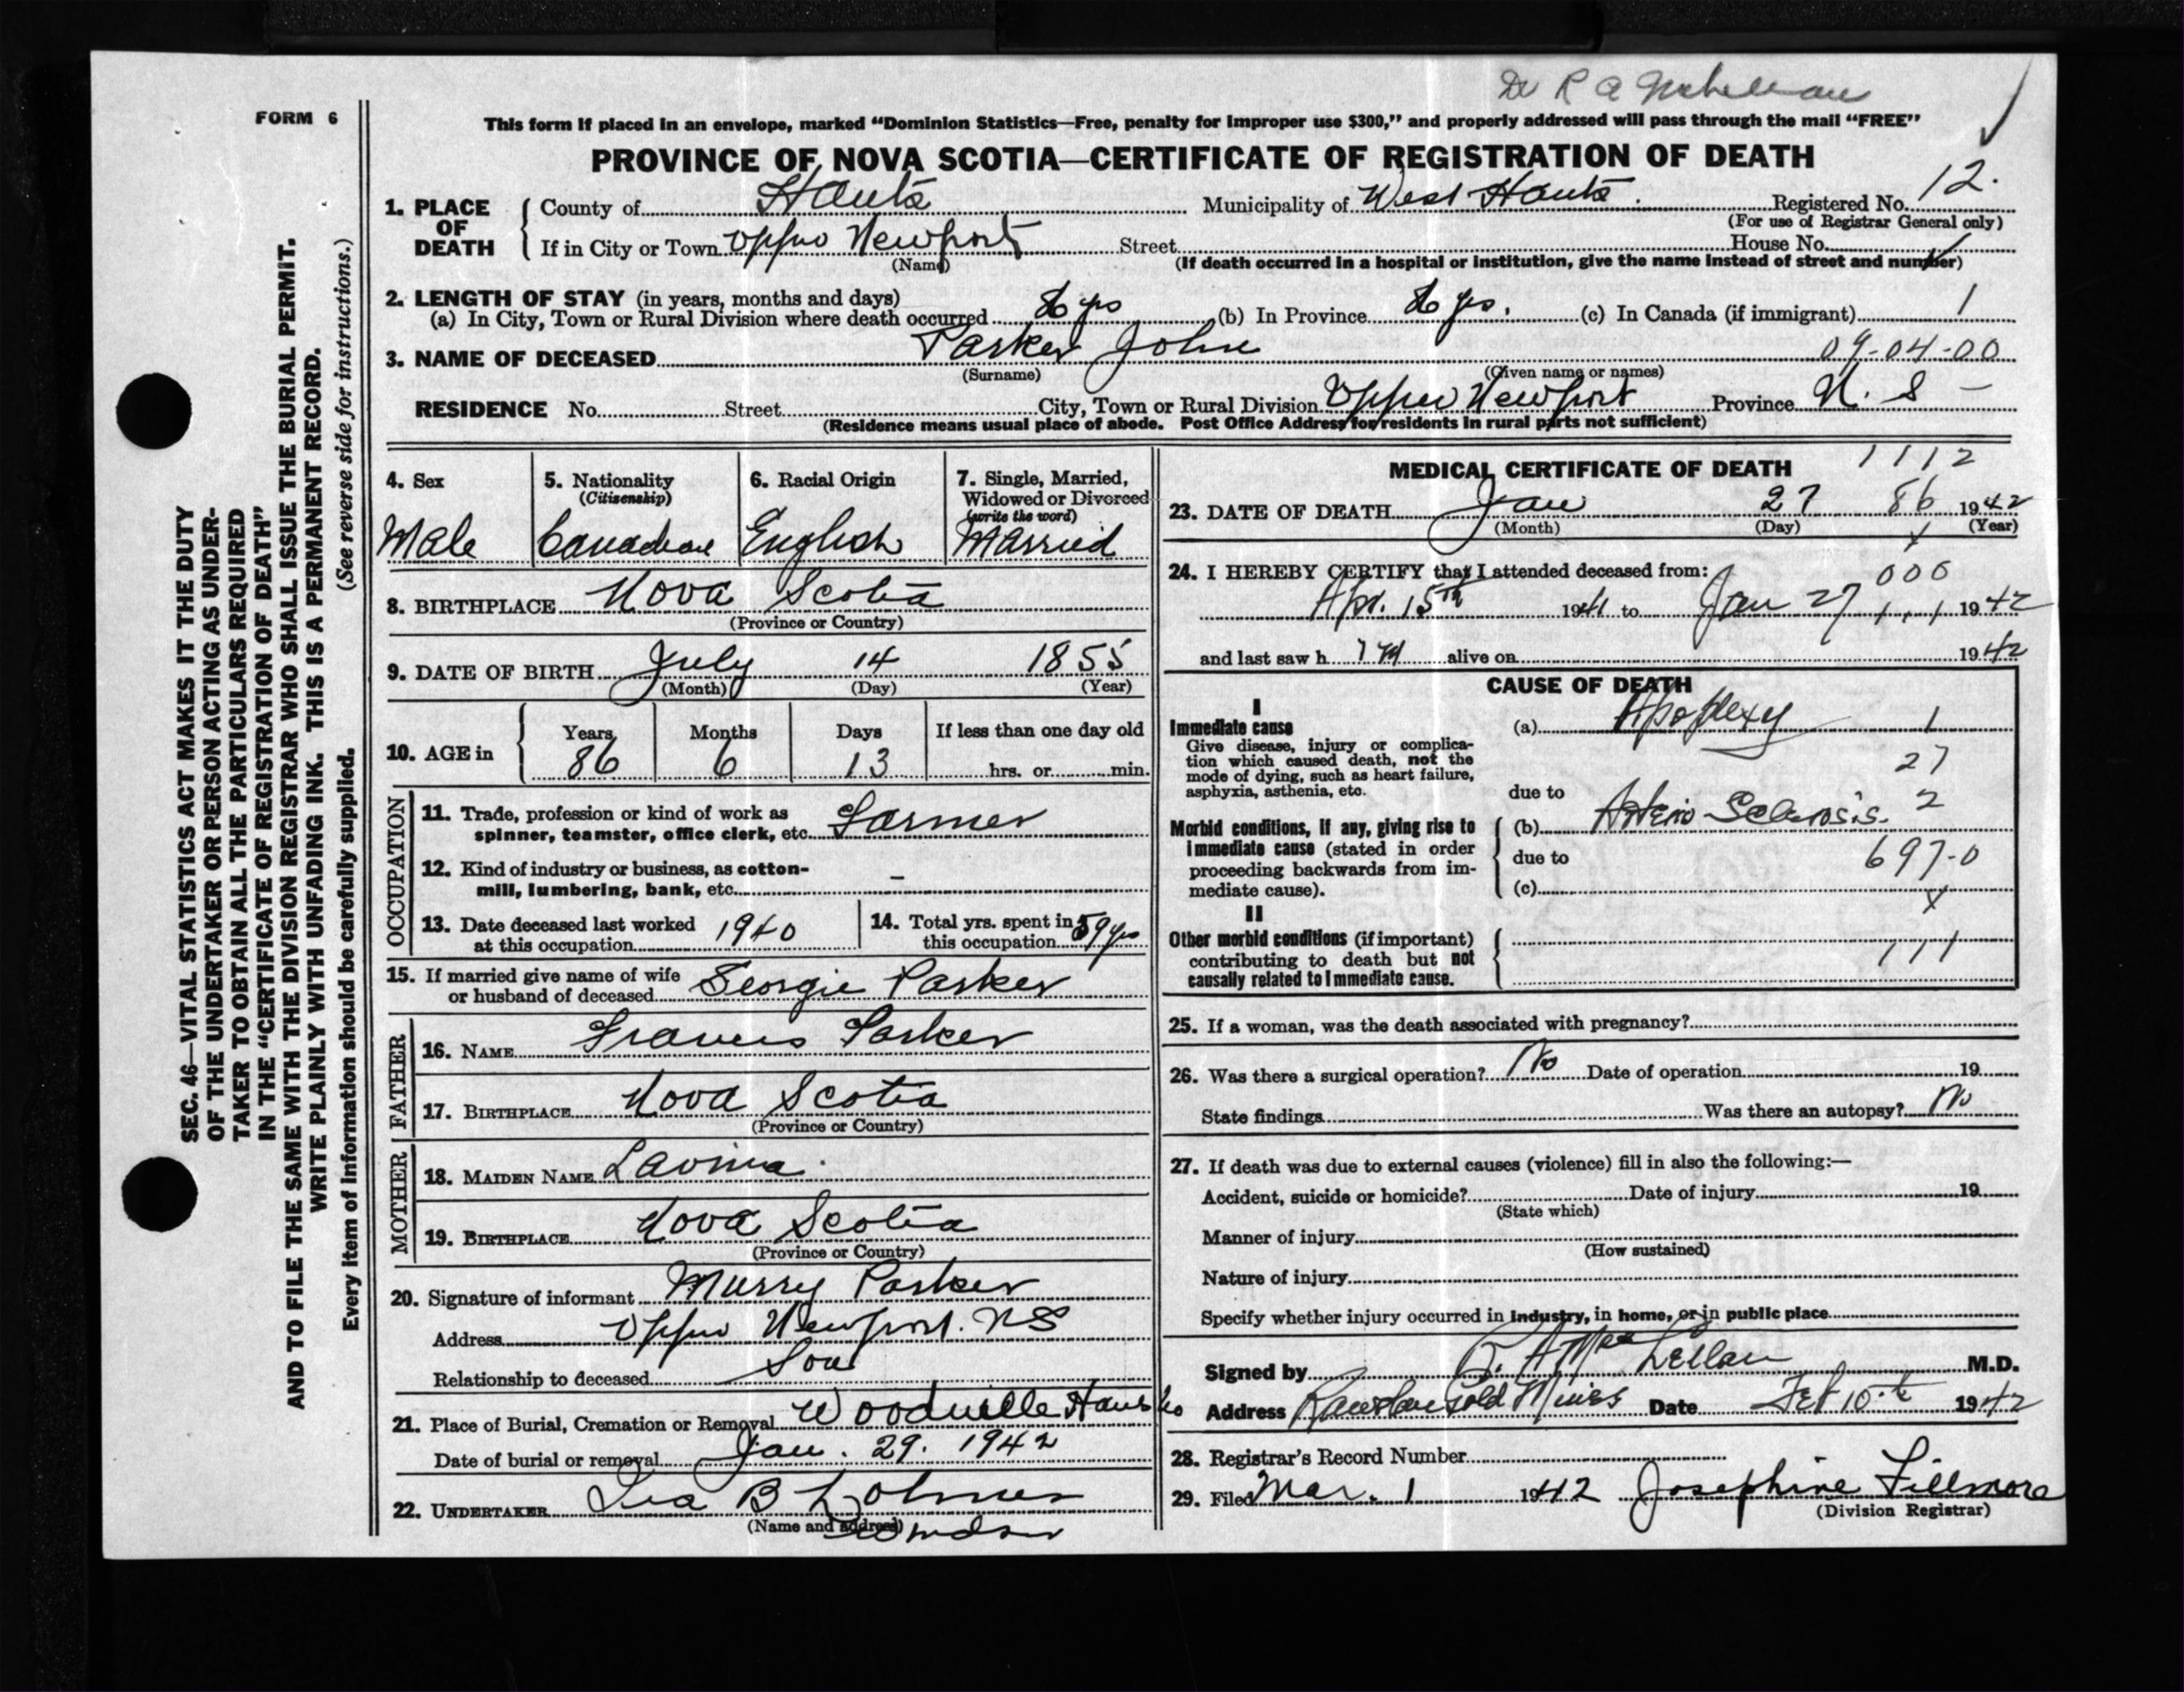 Dr R A
FORM 6
This form if placed in an envelope, marked “Dominion Statistics—Free, penalty for improper use $300,” and properly addressed will pass through the mail “FREE”
PROVINCE OF NOVA SCOTIA—CERTIFICATE OF REGISTRATION OF DEATH
1. PLACE OF DEATH
County of Hants Municipality of West Hants. Registered No. 12.
(For use of Registrar General only)
If in City or Town Upper Newport Street House No.
(Name) (If death occurred in a hospital or institution, give the name instead of street and number)
2. LENGTH OF STAY (in years, months and days)
(a) In City, Town or Rural Division where death occurred yrs (b) In Province yrs. (c) In Canada (if immigrant) 1
3. NAME OF DECEASED Parker John 09-04-00
(Surname) (Given name or names)
RESIDENCE No. Street City, Town or Rural Division Upper Newport Province N. S -
(Residence means usual place of abode. Post Office Address for residents in rural parts not sufficient)
4. Sex
Male
5. Nationality
(Citizenship)
Canadian
6. Racial Origin
English
7. Single, Married,
Widowed or Divorced
(write the word)
Married
8. BIRTHPLACE Nova Scotia
(Province or Country)
9. DATE OF BIRTH July 14 1855
(Month) (Day) (Year)
10. AGE in
Years Months Days If less than one day old
86 6 13 hrs. or min.
OCCUPATION
11. Trade, profession or kind of work as
spinner, teamster, office clerk, etc. Farmer
12. Kind of industry or business, as cotton-
mill, lumbering, bank, etc. –
13. Date deceased last worked
at this occupation 1940
14. Total yrs. spent in
this occupation 59 yrs
15. If married give name of wife
or husband of deceased Georgie Parker
FATHER
16. NAME Francis Parker
17. BIRTHPLACE Nova Scotia
(Province or Country)
MOTHER
18. MAIDEN NAME Lavina
19. BIRTHPLACE Nova Scotia
(Province or Country)
20. Signature of informant Murry Parker
Address Upper Newport. NS
Relationship to deceased Son
21. Place of Burial, Cremation or Removal Woodville Hants Co
Date of burial or removal Jan. 29. 1942
22. UNDERTAKER Ira B
(Name and address) Windsor
MEDICAL CERTIFICATE OF DEATH 1112
23. DATE OF DEATH Jan 27 86 1942
(Month) (Day) (Year)
x
24. I HEREBY CERTIFY that I attended deceased from: 000
Apr. 15th 1941 to Jan 27 1942
and last saw h im alive on 1942
CAUSE OF DEATH
I
Immediate cause
Give disease, injury or complica-
tion which caused death, not the
mode of dying, such as heart failure,
asphyxia, asthenia, etc.
(a) Apoplexy 1
27
due to
Morbid conditions, if any, giving rise to
immediate cause (stated in order
proceeding backwards from im-
mediate cause).
(b) Arterio Sclerosis. 2
due to 697-0
(c)
x
II
Other morbid conditions (if important)
contributing to death but not
causally related to immediate cause.
111
25. If a woman, was the death associated with pregnancy?
26. Was there a surgical operation? No Date of operation 19
State findings Was there an autopsy? No
27. If death was due to external causes (violence) fill in also the following:—
Accident, suicide or homicide? Date of injury 19
(State which)
Manner of injury
(How sustained)
Nature of injury
Specify whether injury occurred in industry, in home, or in public place
Signed by R. A Mac Lellan M.D.
Address Gold Mines Date Feb 10th 1942
28. Registrar's Record Number
29. Filed Mar. 1 1942 Josephine Fillmore
(Division Registrar)
SEC. 46—VITAL STATISTICS ACT MAKES IT THE DUTY
OF THE UNDERTAKER OR PERSON ACTING AS UNDER-
TAKER TO OBTAIN ALL THE PARTICULARS REQUIRED
IN THE “CERTIFICATE OF REGISTRATION OF DEATH”
AND TO FILE THE SAME WITH THE DIVISION REGISTRAR WHO SHALL ISSUE THE BURIAL PERMIT.
WRITE PLAINLY WITH UNFADING INK. THIS IS A PERMANENT RECORD.
Every item of information should be carefully supplied. (See reverse side for instructions.)